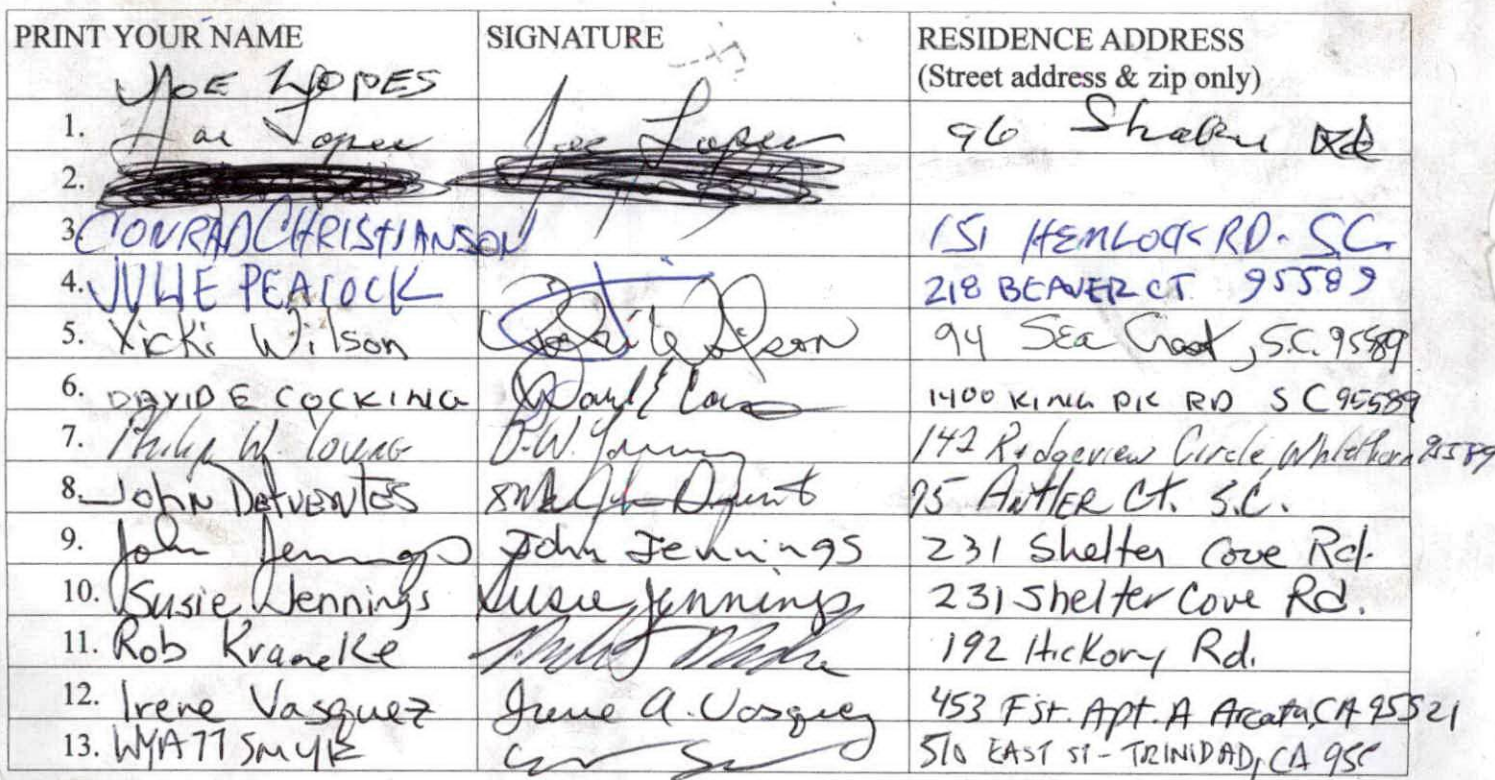 PRINT YOUR NAME SIGNATURE RESIDENCE ADDRESS
(Street address & zip only)
JOE LOPES
1. Joe Lopes Joe Lopes 96 Rd
2.
3. CONRAD CHRISTIANSON 151 HEMLOCK RD. S.C.
4. JULIE PEACOCK 218 BEAVER CT 95589
5. Vicki Wilson 94 Sea S.C. 95589
6. DAVID E COCKING 1400 KING PK RD S C 95589
7. Philip W. Young P.W. Young 142 Ridgeview Circle, Whitethorn 95589
8. JOHN 95 ANTLER Ct. S.C.
9. John Jennings John Jennings 231 Shelter Cove Rd.
10. Susie Jennings Susie Jennings 231 Shelter Cove Rd.
11. Rob 192 Hickory Rd.
12. Irene Vasquez Irene A. Vasquez 453 F St. Apt. A Arcata, CA 95521
13. WYATT 510 EAST ST - TRINIDAD, CA 955